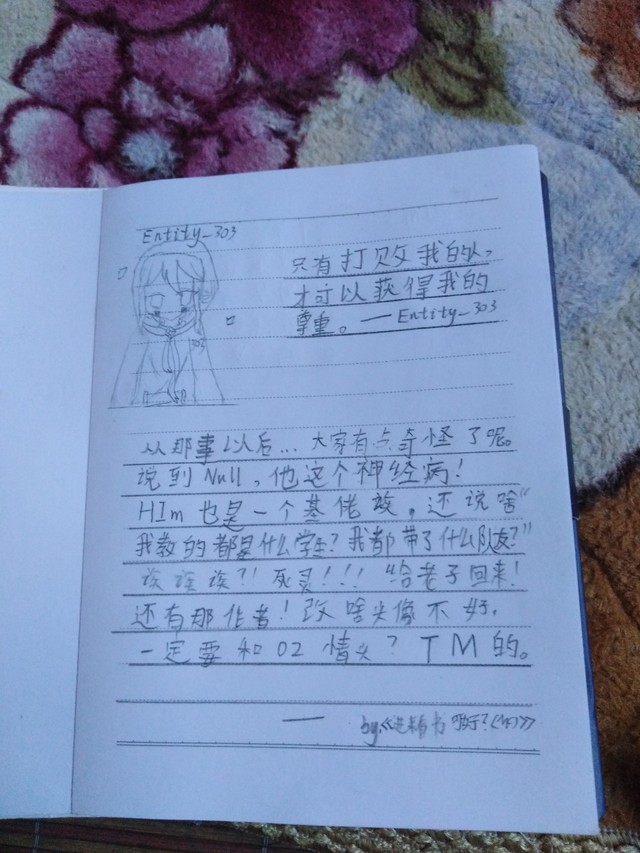 Entity_303
只有打败我的人,
才可以获得我的
尊重。—Entity_303
从那事以后...大家有点奇怪了呢。
说到Null,他这个神经病!
HIm也是一个基佬故,还说啥“
我教的都是什么学生?我都带了什么队友?”
诶诶诶?!死灵!!!给老子回来!
还有那作者!改啥头像不好,
一定要和02情头?TM的。
— by: